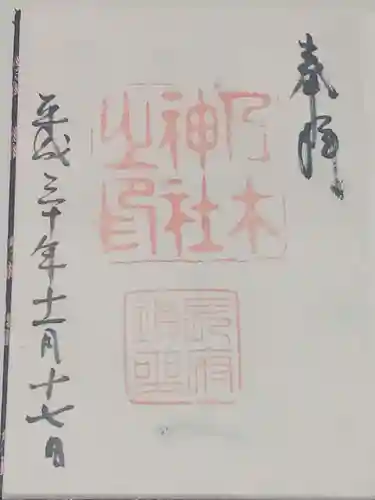 奉拝
乃木
神社
之印
長府
平成三十年十一月十七日